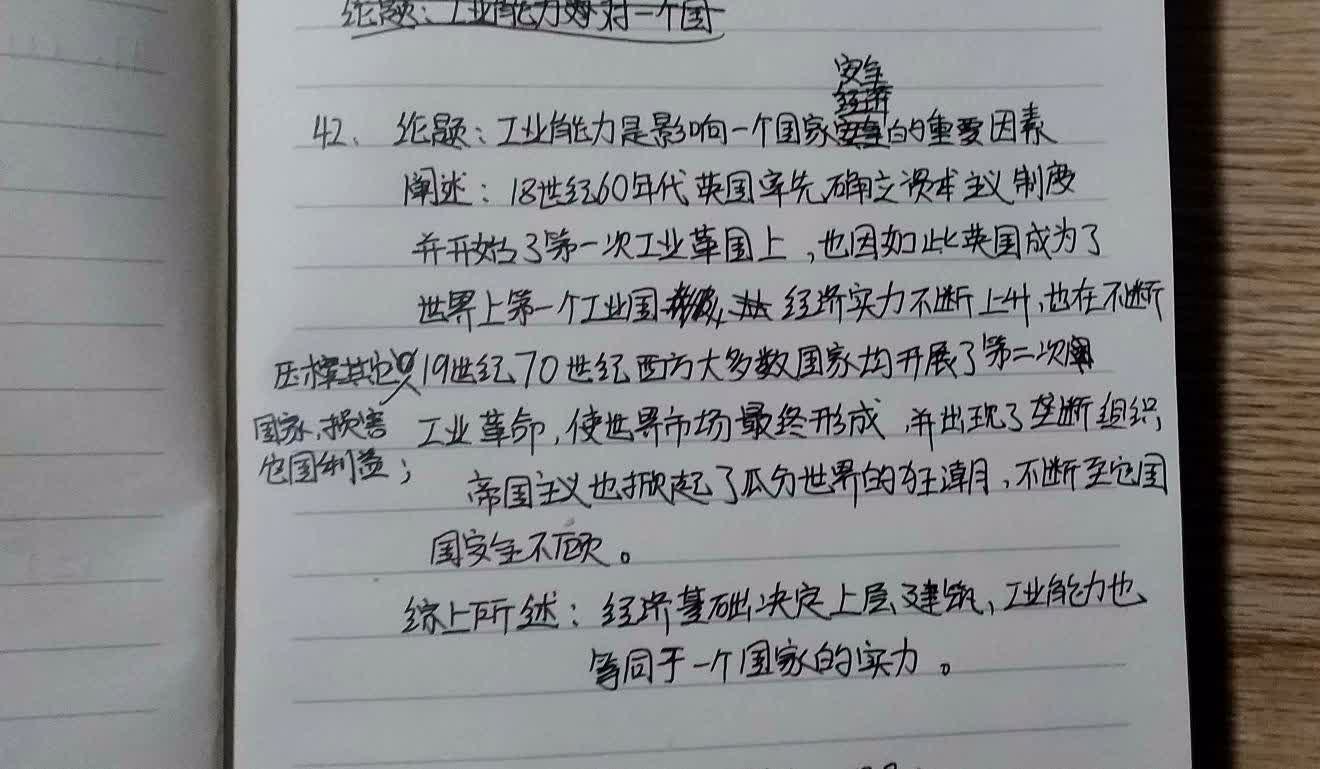 论题：工业能力对一个国
安全
经济
42、论题：工业能力是影响一个国家安全的重要因素
阐述：18世纪60年代英国率先确立资本主义制度
并开始了第一次工业革国上，也因如此英国成为了
世界上第一个工业国 经济实力不断上升，也在不断
压榨其它 19世纪70世纪西方大多数国家均开展了第二次
国家，损害 工业革命，使世界市场最终形成，并出现了垄断组织，
它国利益； 帝国主义也掀起了瓜分世界的狂潮，不断至它国
国安全不顾。
综上所述：经济基础决定上层建筑，工业能力也
等同于一个国家的实力。